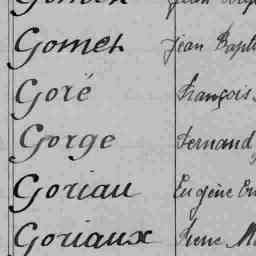 Gomet Jean Bapti
Goré François
Gorge Fernand
Goriau Eugène
Goriaux Irene